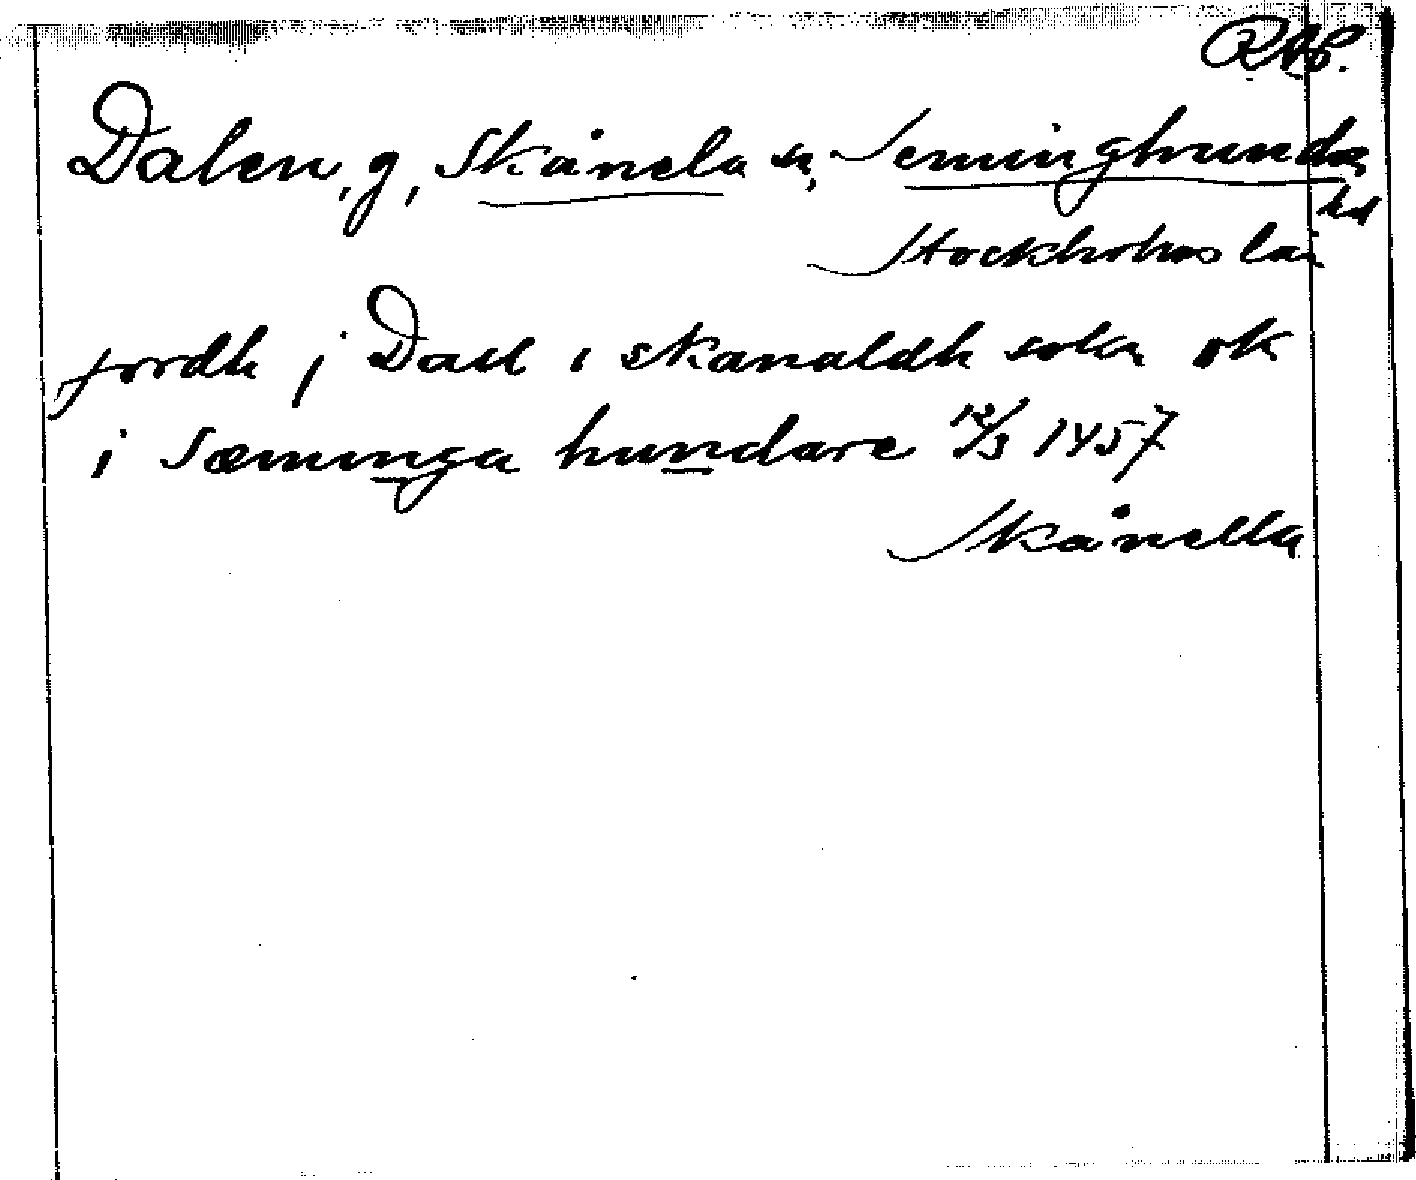 Dalen, g, Skånela sn, Seminghundra
hd
Stockholms län
jordh j Dall i skanaldh sokn ok
i Sæminga hundare 12/3 1457
Skånella